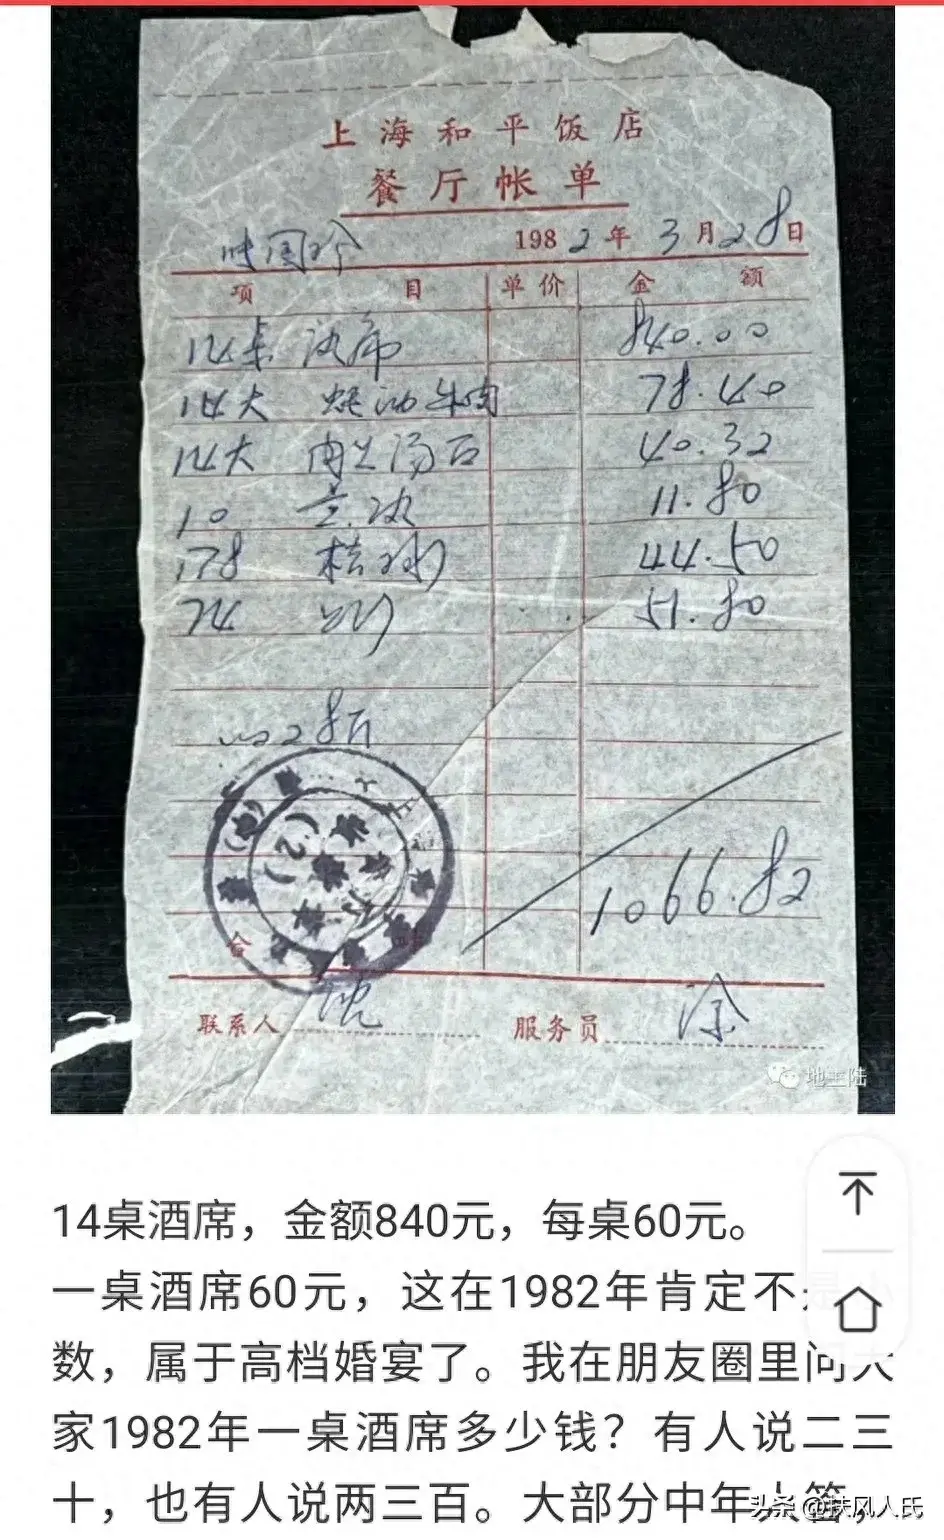 上海和平饭店
餐厅帐单
1982年3月28日
项目 单价 金额
14桌 酒席 840.00
14大 蚝油牛肉 78.40
14大 40.32
10 11.80
178 桔水 44.50
74 51.80
1066.82
合
联系人 沈 服务员 涂
地主陆
14桌酒席，金额840元，每桌60元。
一桌酒席60元，这在1982年肯定不
数，属于高档婚宴了。我在朋友圈里问大
家1982年一桌酒席多少钱？有人说二三
十，也有人说两三百。大部分中年人答
头条 @扶风人氏